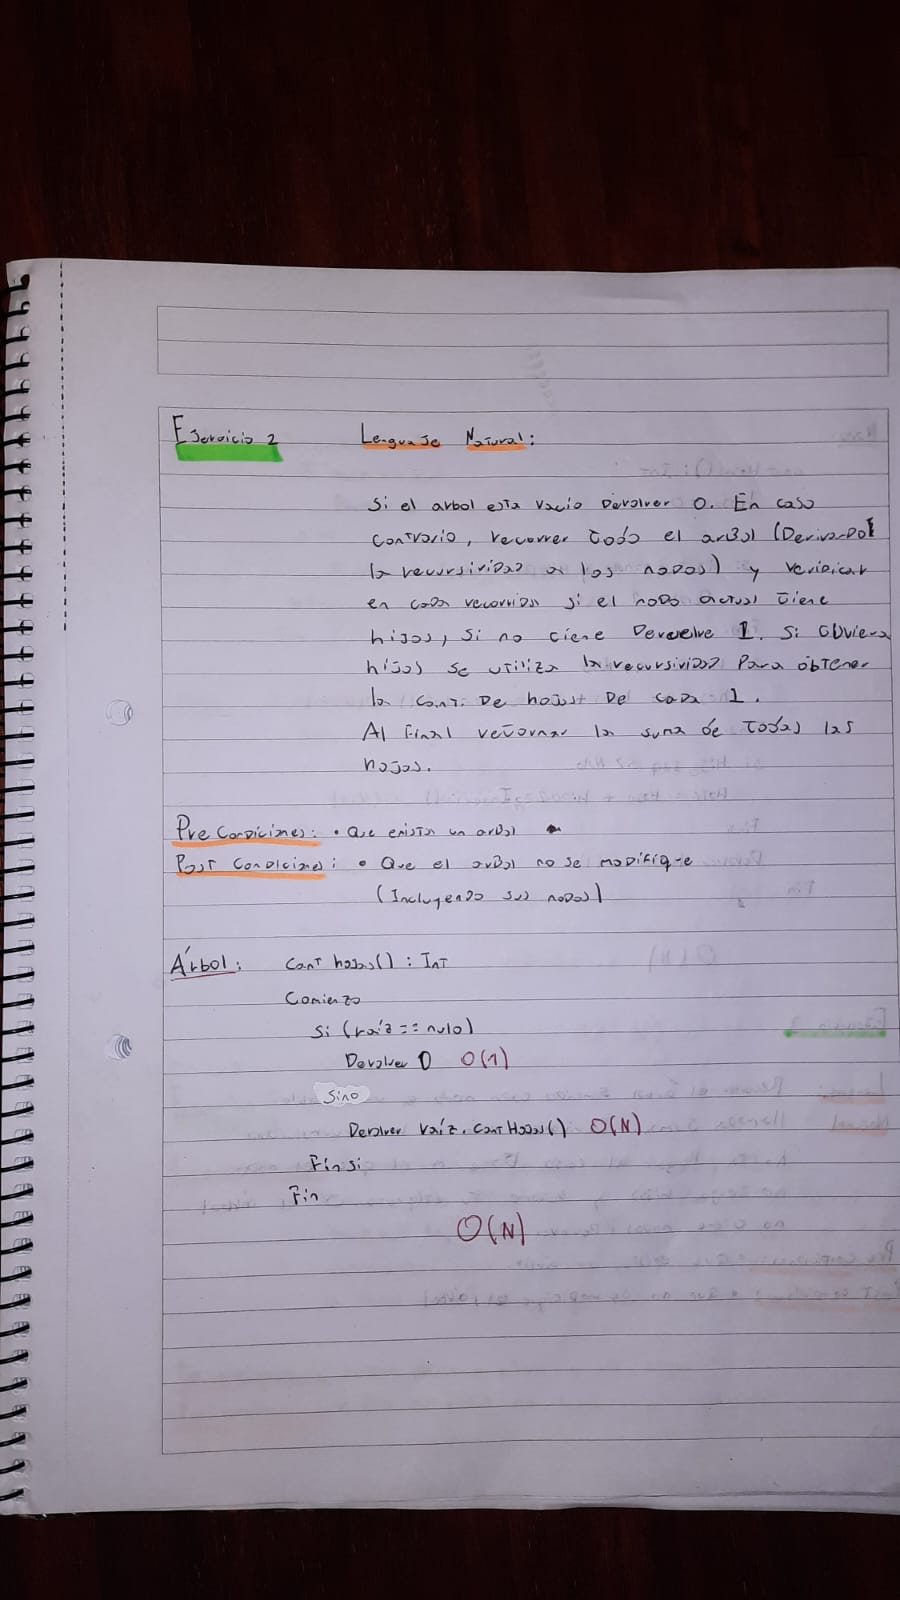 Ejercicio 2 Lenguaje Natural:
Si el arbol esta vacio Devolver 0. En caso
contrario, recorrer todo el arbol (Derivando
la recursividad a los nodos) y verificar
en cada recorrido si el nodo actual tiene
hijos, si no tiene Devuelve 1. Si obviera
hijos se utiliza la recursividad para obtener
la cant. De hojas De cada 1.
Al final retornar la suma de todas las
hojas.
Pre Condiciones: • Que exista un arbol
Post Condiciones: • Que el arbol no se modifique
(Incluyendo sus nodos)
Árbol: cant hojas() : Int
Comienzo
Si (raíz == nulo)
Devolver 0 O(1)
Sino
Devolver raíz.cantHojas() O(N)
Fin si
Fin
O(N)